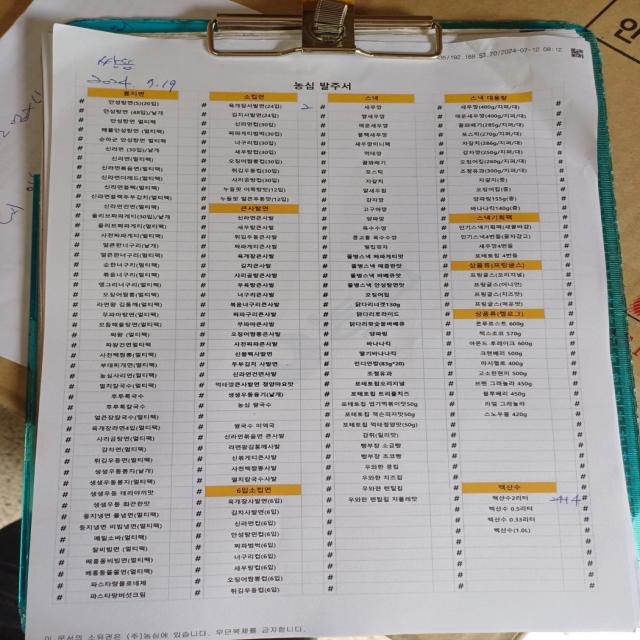 192.168.53.70/2024-07-12 08:12
2024. 7.19
농심 발주서
봉지면
# 안성탕면(S)(20입)
# 안성탕면 (48입)/낱개
# 안성탕면 멀티팩
# 해물안성탕면(멀티팩)
# 순하군 안성탕면(멀티팩)
# 신라면 (30입)/낱개
# 신라면(멀티팩)
# 신라면더레드(멀티팩)
# 신라면볶음면(멀티팩)
# 신라면블랙(멀티팩)
# 신라면건면(멀티팩)
# 올리브짜파게티(30입)/낱개
# 올리브짜파게티(멀티팩)
# 사천짜파게티(멀티팩)
# 얼큰한너구리(낱개)
# 얼큰한너구리(멀티팩)
# 순한너구리(멀티팩)
# 볶음너구리(멀티팩)
# 앵그리너구리(멀티팩)
# 오징어짬뽕(멀티팩)
# 무파마탕면(멀티팩)
# 모듬해물탕면(멀티팩)
# 짜왕 (멀티팩)
# 짜왕건면멀티팩
# 사천백짬뽕(멀티팩)
# 부대찌개면(멀티팩)
# 농심사리면(멀티팩)
# 멸치칼국수(멀티팩)
# 후루룩국수
# 후루룩칼국수
# 얼큰장칼국수(멀티팩)
# 육개장라면4입(멀티팩)
# 사리곰탕면(멀티팩)
# 감자면(멀티팩)
# 튀김우동면(멀티팩)
# 생생우동봉지(낱개)
# 생생우동봉지(멀티팩)
# 생생우동 데리야끼맛
# 생생우동 화끈한맛
# 둥지냉면 물냉면(멀티팩)
# 둥지냉면 비빔냉면(멀티팩)
# 메밀소바(멀티팩)
# 찰비빔면 (멀티팩)
# 배홍동비빔면(멀티팩)
# 배홍동쫄쫄면(멀티팩)
# 파스타랑볼로네제
# 파스타랑버섯크림
소컵면
# 육개장사발면(24입) 2
# 김치사발면(24입)
# 신라면컵(30입)
# 짜파게티범벅(30입)
# 너구리컵(30입)
# 새우탕컵(30입)
# 오징어짬뽕컵(30입)
# 튀김우동컵(30입)
# 사리곰탕컵(30입)
# 누들핏 어묵탕맛(12입)
큰사발면
# 신라면큰사발
# 새우탕큰사발
# 튀김우동큰사발
# 짜파게티큰사발
# 육개장큰사발
# 김치큰사발
# 우육탕큰사발
# 너구리큰사발
# 볶음너구리큰사발
# 짜파구리큰사발
# 무파마큰사발
# 오징어짬뽕큰사발
# 사천짜파큰사발
# 신블랙사발면
# 두부김치 사발면
# 신라면건면사발
# 생생우동용기(낱개)
# 농심 쌀국수
# 쌀국수 미역국
# 신라면볶음면 큰사발
# 라면왕김통깨사발
# 신볶게티큰사발
# 사천백짬뽕사발
# 멸치칼국수사발
6입소컵면
# 육개장사발면(6입)
# 김치사발면(6입)
# 신라면컵(6입)
# 안성탕면컵(6입)
# 짜파범벅(6입)
# 너구리컵(6입)
# 새우탕컵(6입)
# 오징어짬뽕컵(6입)
# 튀김우동컵(6입)
스낵
# 새우깡
# 쌀새우깡
# 매운새우깡
# 블랙새우깡
# 새우깡미니팩
# 먹태깡
# 꿀꽈배기
# 포스틱
# 자갈치
# 알새우칩
# 감자깡
# 고구마깡
# 양파깡
# 옥수수깡
# 별집핏자
# 쫄병스낵 짜파게티맛
# 쫄병스낵 매콤한맛
# 쫄병스낵 바베큐맛
# 쫄병스낵 안성탕면맛
# 오징어집
# 닭다리너겟130g
# 닭다리후라이드
# 닭다리핫숯불바베큐
# 양파링
# 바나나킥
# 딸기바나나킥
# 인디안밥(83g*20)
# 조청유과
# 포테토칩오리지널
# 포테토칩 트리플치즈
# 포테토칩 엽기떡볶이맛50g
# 포테토칩 잭슨피자맛(50g)
# 포테토칩 먹태청양맛(50g)
# 감튀(칠리맛)
# 빵부장 소금빵
# 빵부장 초코빵
# 우와한 콩칩
# 우와한 치즈칩
# 우와한 렌틸칩
# 우와한 렌틸칩 치폴레맛
스낵 대용량
# 새우깡(400g/지퍼/대)
# 매운새우깡(400g/지퍼/대)
# 꿀꽈배기(285g/지퍼/대)
# 포스틱(270g/지퍼/대)
# 자갈치(286g/지퍼/대)
# 감자깡(250g/지퍼/대)
# 오징어집(280g/지퍼/대)
# 조청유과(300g/지퍼/대)
# 자갈치(중)
# 오징어집(중)
# 양파링155g(중)
# 바나나킥140g(중)
스낵기획팩
# 인기스낵기획팩(새꿀바감)
# 새우깡4번들
# 포테토칩 4번들
상품류(프링글스)
# 프링글스(오리지널)
# 프링글스(어니언)
# 프링글스(치즈맛)
# 프링글스(매운맛)
상품류(켈로그)
# 콘푸로스트 600g
# 첵스초코 570g
# 아몬드 푸레이크 600g
# 크랜베리 500g
# 허쉬첼로 400g
# 고소한현미 500g
# 브랜 그래놀라 450g
# 블루베리 450g
# 리얼 그래놀라
# 스노우볼 420g
백산수
# 백산수2리터
# 백산수 0.5리터
# 백산수 0.33리터
# 백산수(1.0L)
이 문서의 소유권은 (주)농심에 있습니다. 무단복제를 금지합니다.